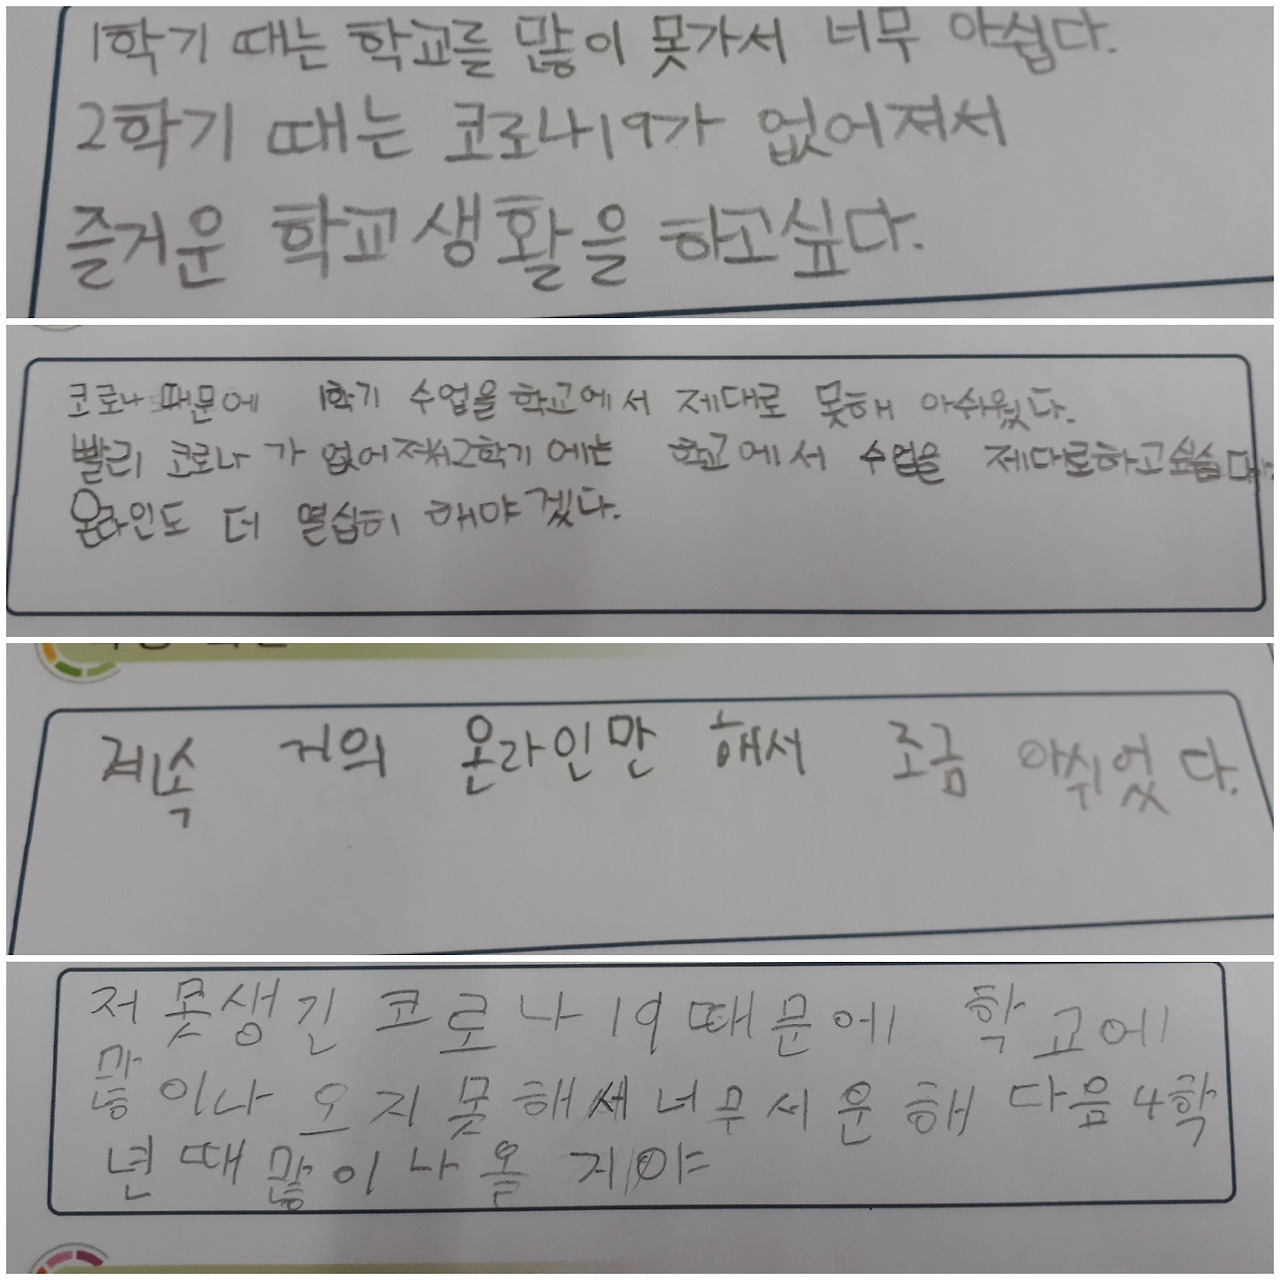 1학기 때는 학교를 많이 못가서 너무 아쉽다.
2학기 때는 코로나19가 없어져서
즐거운 학교생활을 하고싶다.
코로나 때문에 1학기 수업을 학교에서 제대로 못해 아쉬웠다.
빨리 코로나 가 없어져서2학기 에는 학교에서 수업을 제대로하고싶습다.
온라인도 더 열심히 해야겠다.
계속 거의 온라인만 해서 조금 아쉬었다.
저 못생긴 코로나19 때문에 학교에
많이나 오지못해서 너무서운해 다음4학
년때 많이나올 거야